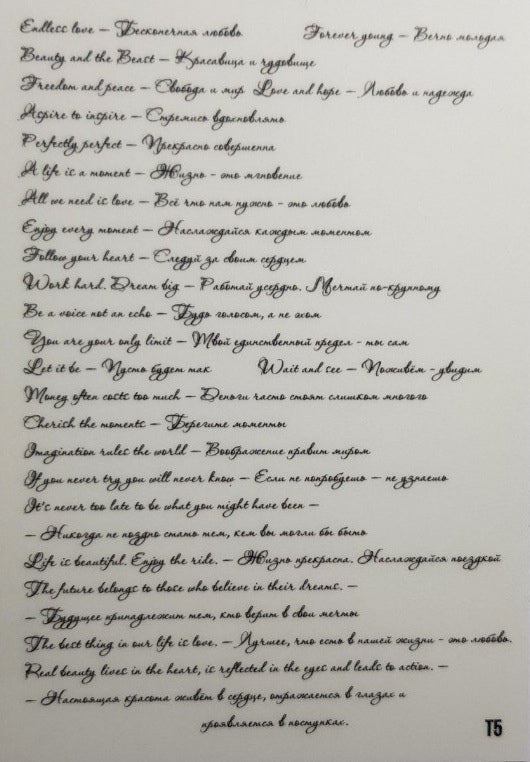 Endless love — Бесконечная любовь Forever young — Вечно молодая
Beauty and the Beast — Красавица и чудовище
Freedom and peace — Свобода и мир Love and hope — Любовь и надежда
Aspire to inspire — Стремись вдохновлять
Perfectly perfect — Прекрасно совершенна
A life is a moment — Жизнь - это мгновение
All we need is love — Всё что нам нужно - это любовь
Enjoy every moment — Наслаждайся каждым моментом
Follow your heart — Следуй за своим сердцем
Work hard. Dream big — Работай усердно. Мечтай по-крупному
Be a voice not an echo — Будь голосом, а не эхом
You are your only limit — Твой единственный предел - ты сам
Let it be — Пусть будет так Wait and see — Поживём - увидим
Money often costs too much — Деньги часто стоят слишком многого
Cherish the moments — Берегите моменты
Imagination rules the world — Воображение правит миром
If you never try you will never know — Если не попробуешь — не узнаешь
It's never too late to be what you might have been —
— Никогда не поздно стать тем, кем вы могли бы быть
Life is beautiful. Enjoy the ride. — Жизнь прекрасна. Наслаждайся поездкой
The future belongs to those who believe in their dreams. —
— Будущее принадлежит тем, кто верит в свои мечты
The best thing in our life is love. — Лучшее, что есть в нашей жизни - это любовь.
Real beauty lives in the heart, is reflected in the eyes and leads to action. —
— Настоящая красота живёт в сердце, отражается в глазах и
проявляется в поступках.
T5